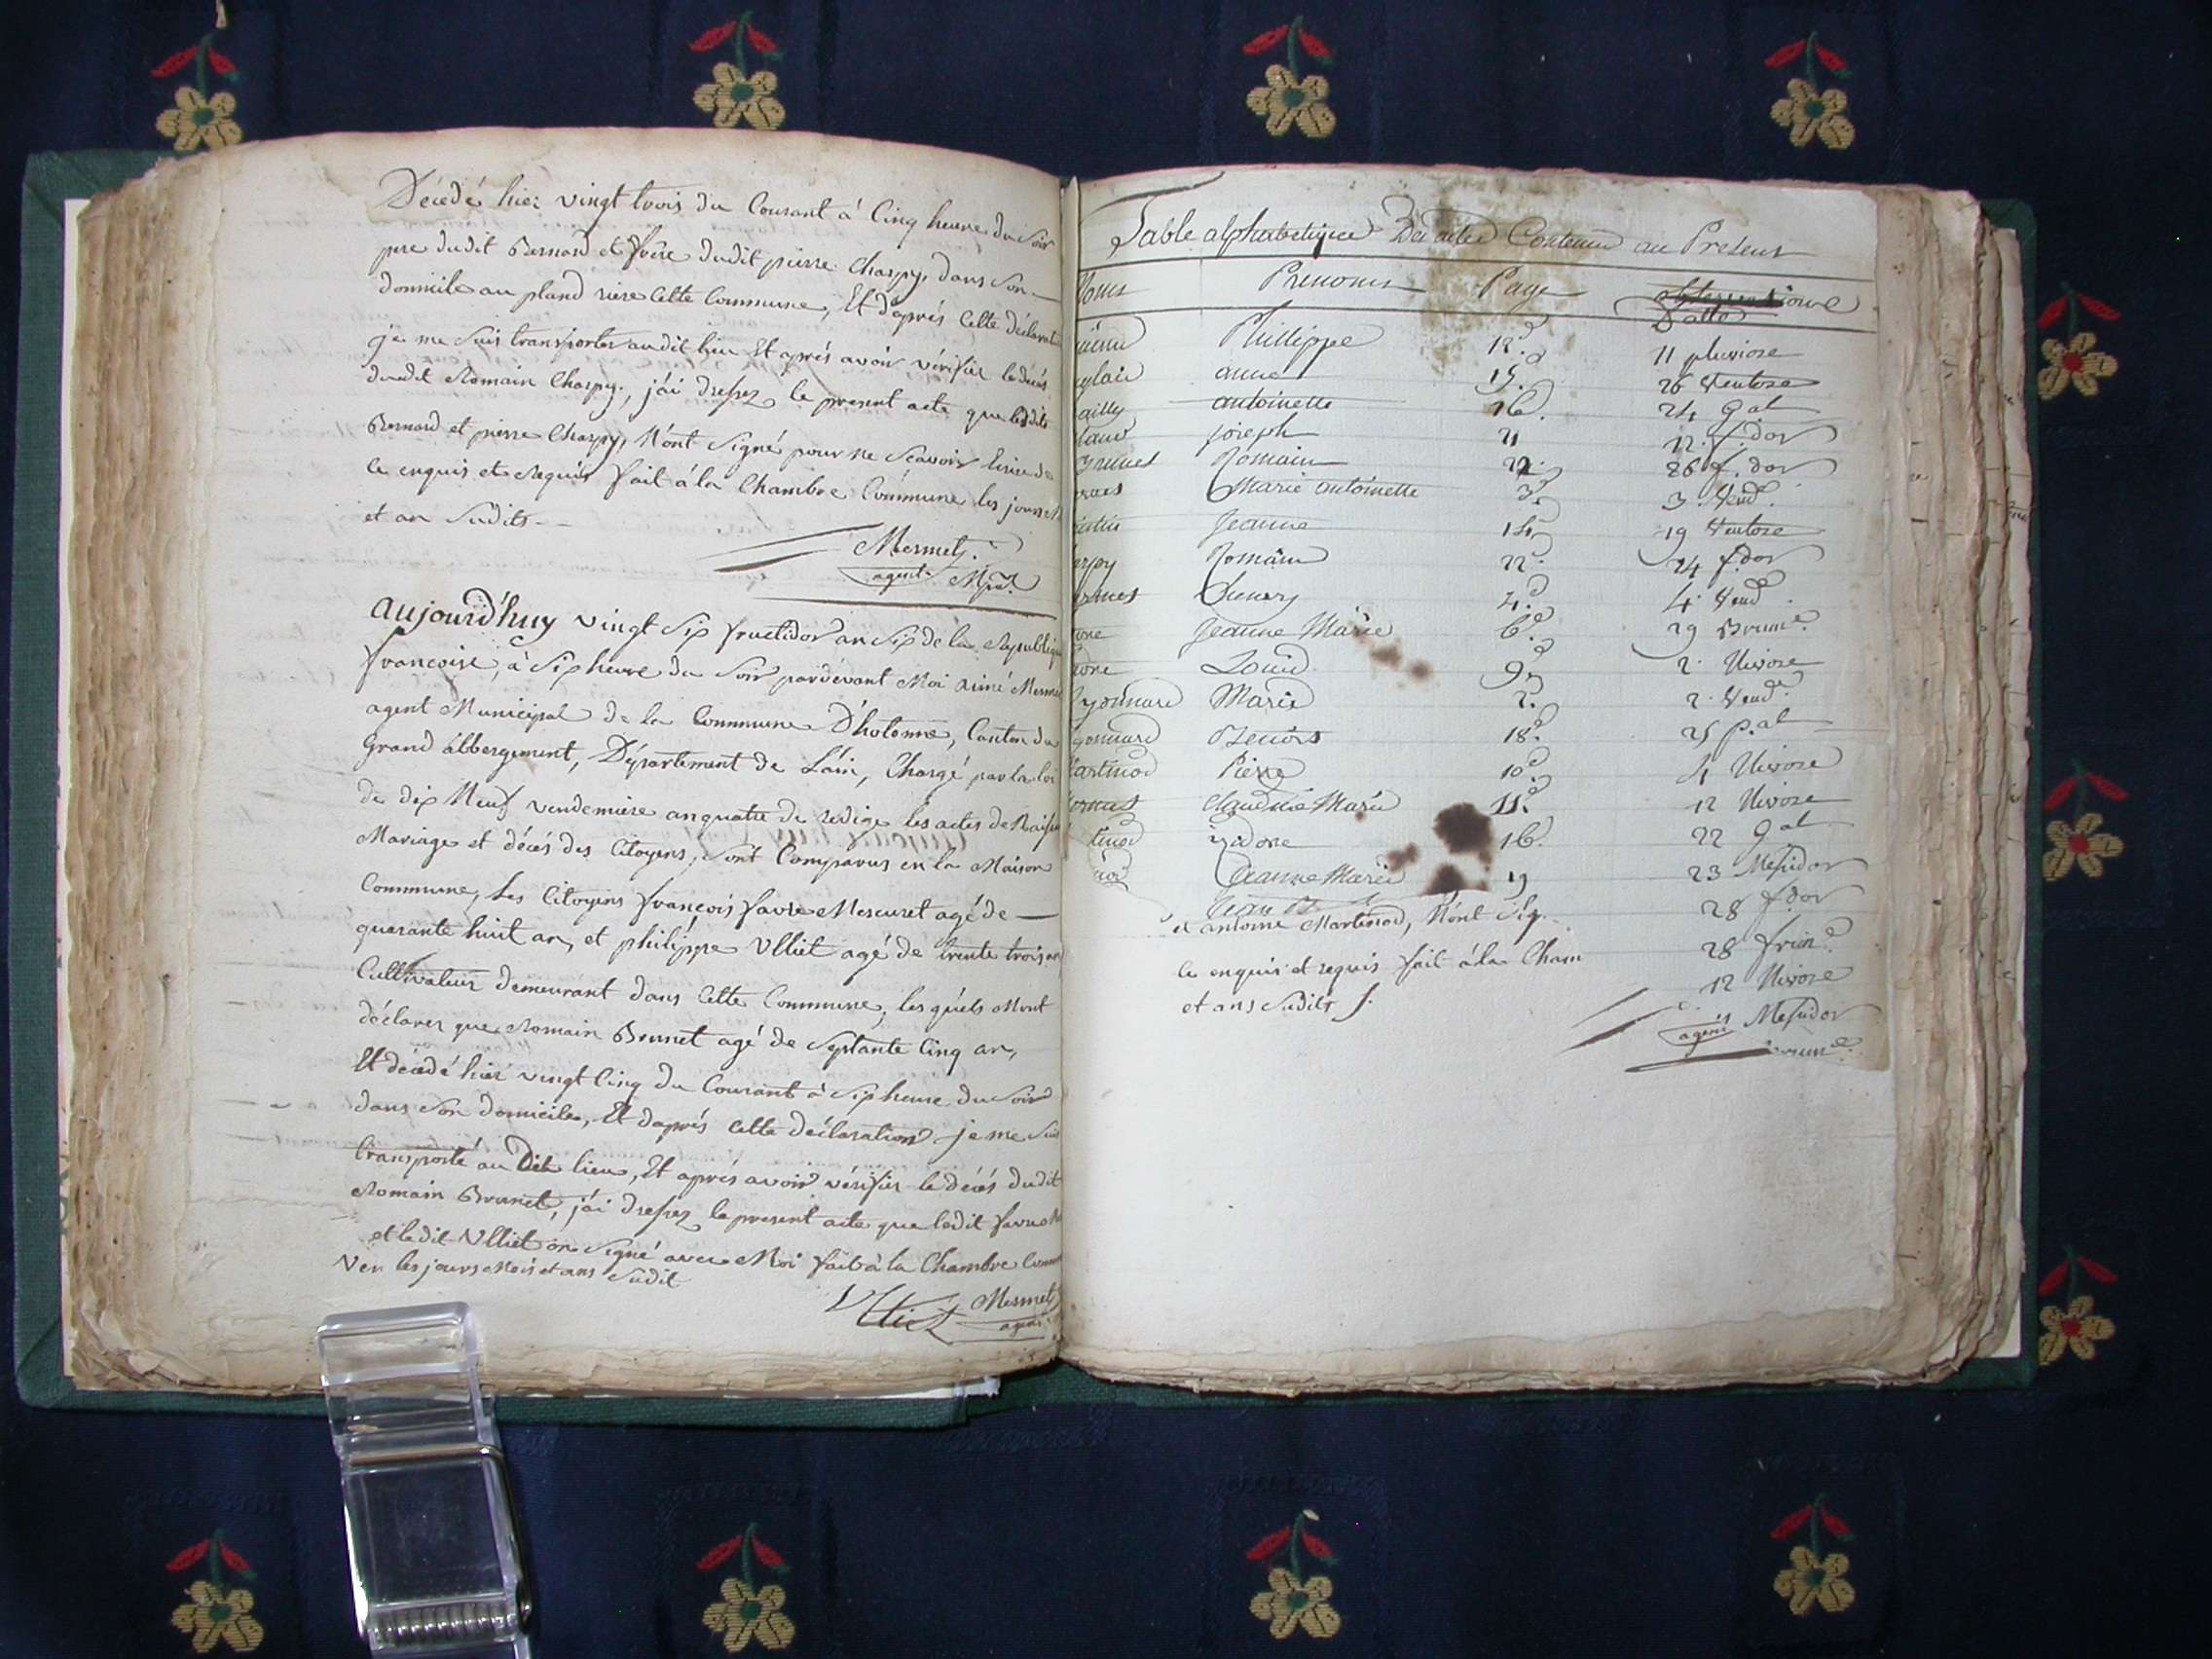 Décedé hier vingt trois du Courant á Cinq heure du Soir
pere dudit Bernard et frère dudit pierre Charpy, dans Son
domicile au pland riere Cette Commune, Et d'aprés Cette déclarati
je me Suis transporter audit lieu Et aprés avoir vérifier le decés
dudit Romain Charpy, j'ái dressez le present acte que lesdits
Bernard et pierre Charpy, N'ont Signé pour ne Scavoir Ecrire de
ce enquis et Requis fait á la Chambre Commune les jours
et an Sudits
Mermetz
agent Mpal
aujourd'huy vingt Six fructidor an Six de la Republiq
francoise, á Six heure du Soir pardévant Moi aimé Merme
agent Municipal de la Commune D'hotonne, Canton du
Grand abbergement, Département de L'ain, Chargé par la loi
de dix Neuf vendemiere an quatre de redige les actes de Naiss
Mariage et décés des Citoyens, Sont Comparus en la Maison
Commune, Les Citoyens françois favre Mercuret agé de
quarante huit an, et philippe Ulliet agé de trente trois an
Cultivateur demeurant dans Cette Commune, lesquels Mont
déclarer que Romain Brunet agé de Septante Cinq an,
Et décedé hier vingt Cinq du Courant á Six heure du Soir
dans Son domicile, Et daprés Cette déclaration je me Suis
transporté au Dit lieu, Et aprés avoir vérifier le décés dudit
Romain Brunet, j'ái dressez le present acte que ledit favre
et ledit Ulliet on Signé avec Moi fait á la Chambre Comm
les jours Mois et ans Sudit
Ulliet Mermetz
agent
Table alphabetique Des actes Contenu au Present
Noms Prenoms Page
Datte
Phillippe 12 11 pluviose
anne 15 26 Ventose
ailly antoinette 16 24 gal
joseph 21 12 f.dor
Romain 22 26 f.dor
Marie antoinette 3 3 Vend
Jeanne 14 19 Ventose
arpy Romain 22 24 f.dor
4 4 Vend
Jeanne Marie 6 29 Brume
Louis 9 2 Nivose
Marie 2 2 Vend
Benois 18 25 p.al
artinod Pierre 10 4 Nivose
Claudine Marie 11 12 Nivose
tinod izidore 16 22 gal
Jeanne Marie 19 23 Messidor
Jean 28 f.dor
et antoine Martinod, N'ont Sig
28 frim
ce enquis et requis fait á la Cham
12 Nivose
et ans Sudits
agent Messidor